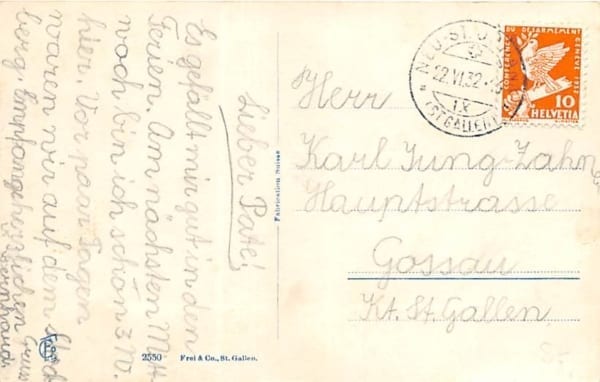 Lieber Pate!
Es gefällt mir gut in den
Ferien. Am nächsten Mitt-
noch bin ich schon 3 W.
hier. Vor paar Tagen
waren wir auf dem
berg. Empfange herzlichen Gruss
Bernhard
2550
Frei & Co., St. Gallen.
Fabrication Suisse
NEU-ST.
22.VI.32
IX
(ST. GALLEN)
CONFERENCE DU DESARMEMENT GENEVE 1932
10
HELVETIA
Herrn
Karl Jung-Zahn
Hauptstrasse
Gossau
Kt. St. Gallen